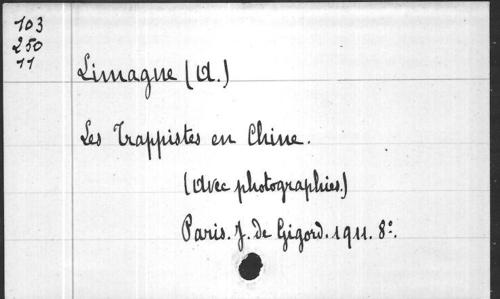 103
250
11
Limagne (A.)
Les Trappistes en Chine.
(Avec photographies.)
Paris. J. de Gigord. 1911. 8°.